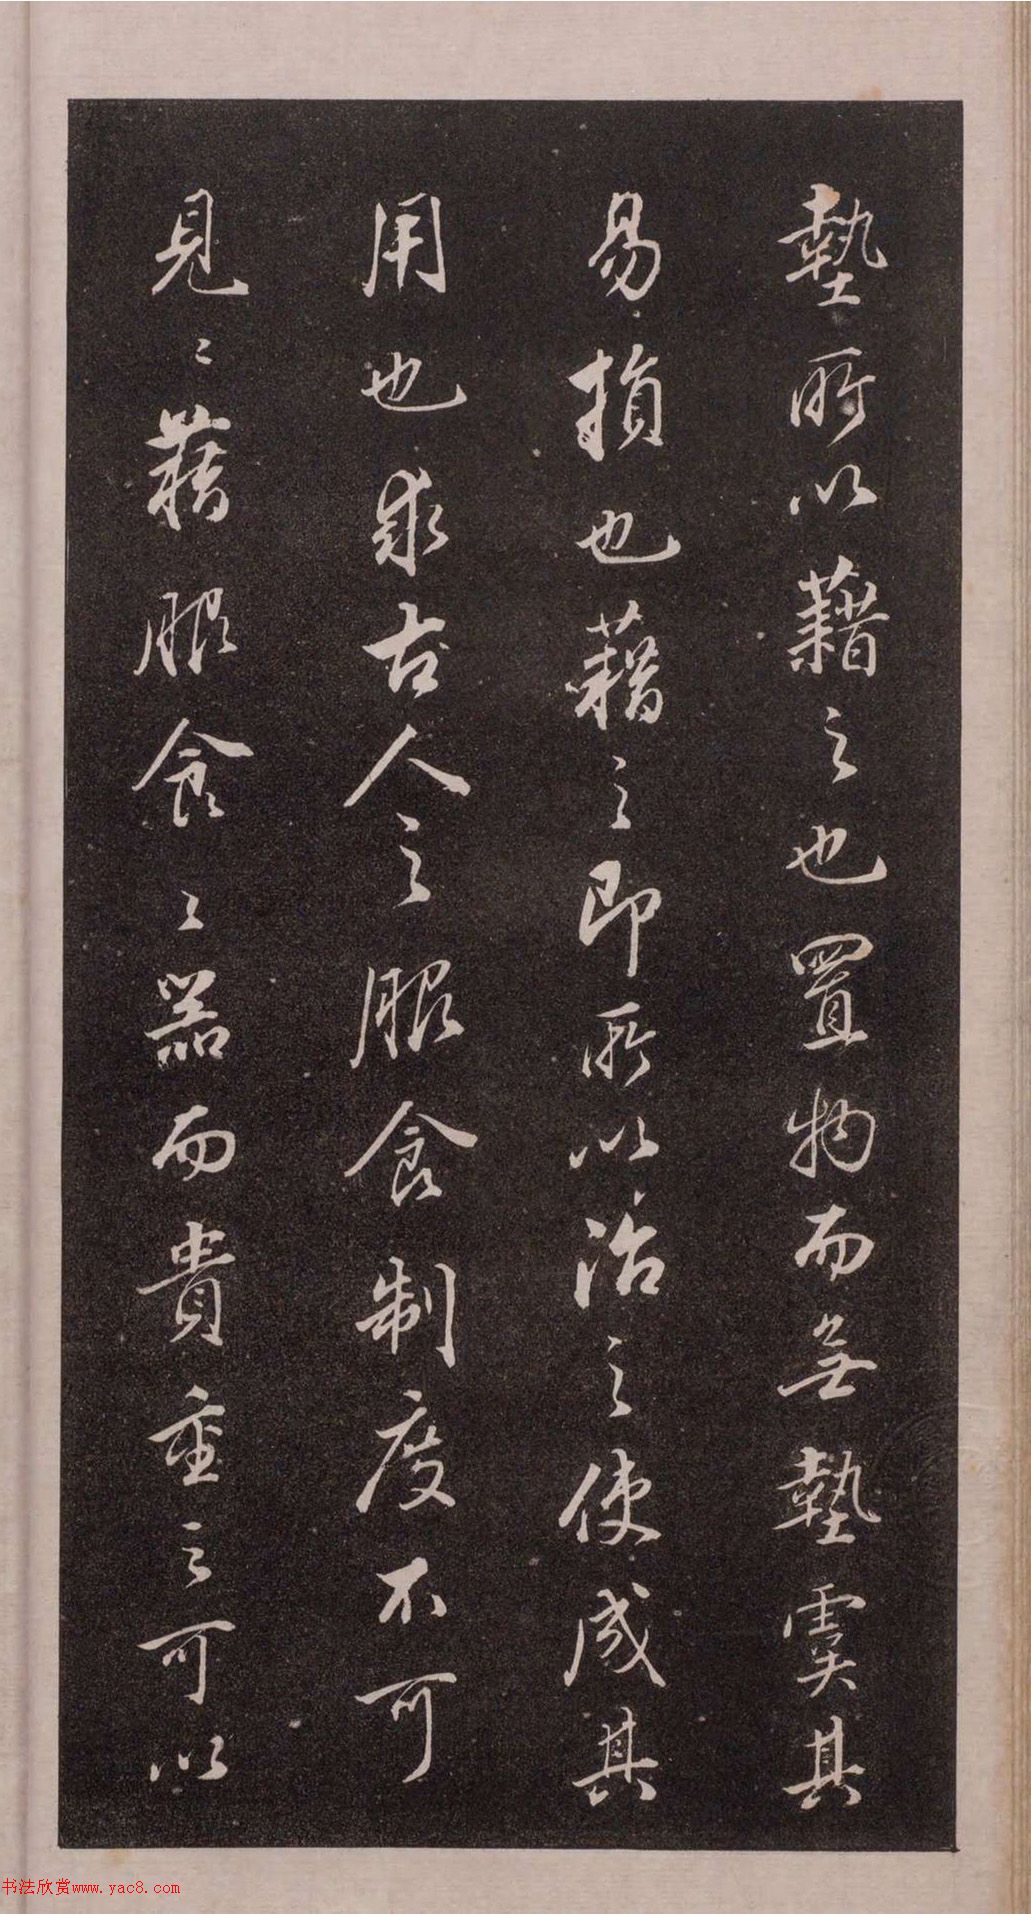 墊所以藉之也置物而無墊虞其
易損也藉之即所以治之使成其
用也求古人之服食制度不可
見〻藉服食〻器而貴重之可以
书法欣赏www.yac8.com